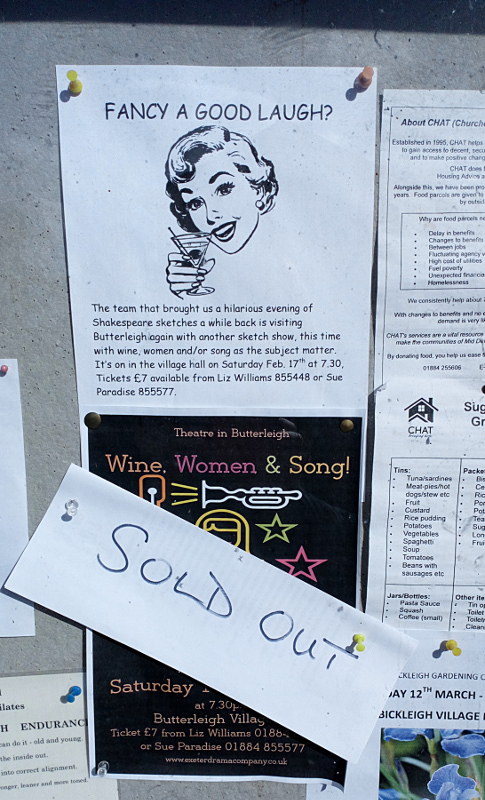 FANCY A GOOD LAUGH?
The team that brought us a hilarious evening of
Shakespeare sketches a while back is visiting
Butterleigh again with another sketch show, this time
with wine, women and/or song as the subject matter.
It's on in the village hall on Saturday Feb. 17th at 7.30,
Tickets £7 available from Liz Williams 855448 or Sue
Paradise 855577.
Theatre in Butterleigh
Wine, Women & Song!
SOLD OUT
Saturday
at 7.30p
Butterleigh Villag
Ticket £7 from Liz Williams 01884
or Sue Paradise 01884 855577
www.exeterdramacompany.co.uk
About CHAT (Churche
Established in 1995, CHAT helps
to gain access to decent, secu
and to make positive chang
CHAT does
Housing Advice a
Alongside this, we have been pro
years. Food parcels are given to
by outsi
Why are food parcels ne
Delay in benefits
Changes to benefits
Between jobs
Fluctuating agency w
High cost of utilities
Fuel poverty
Unexpected financia
Homelessness
We consistently help about
With changes to benefits and no e
demand is very li
CHAT's services are a vital resource
make the communities of Mid De
By donating food, you help us ease
01884 255606 E-
CHAT
Sug
Gr
Tins:
Tuna/sardines
Meat-pies/hot
dogs/stew etc
Fruit
Custard
Rice pudding
Potatoes
Vegetables
Spaghetti
Soup
Tomatoes
Beans with
sausages etc
Packe
Bis
Ce
Ric
Por
Pot
Tea
Sug
Lon
Fru
Jars/Bottles:
Pasta Sauce
Squash
Coffee (small)
Other ite
Tin op
Toilet
Toiletr
Clean
BICKLEIGH GARDENING C
DAY 12TH MARCH -
BICKLEIGH VILLAGE
ilates
H ENDURANC
an do it - old and young,
the inside out.
into correct alignment.
onger, leaner and more toned.